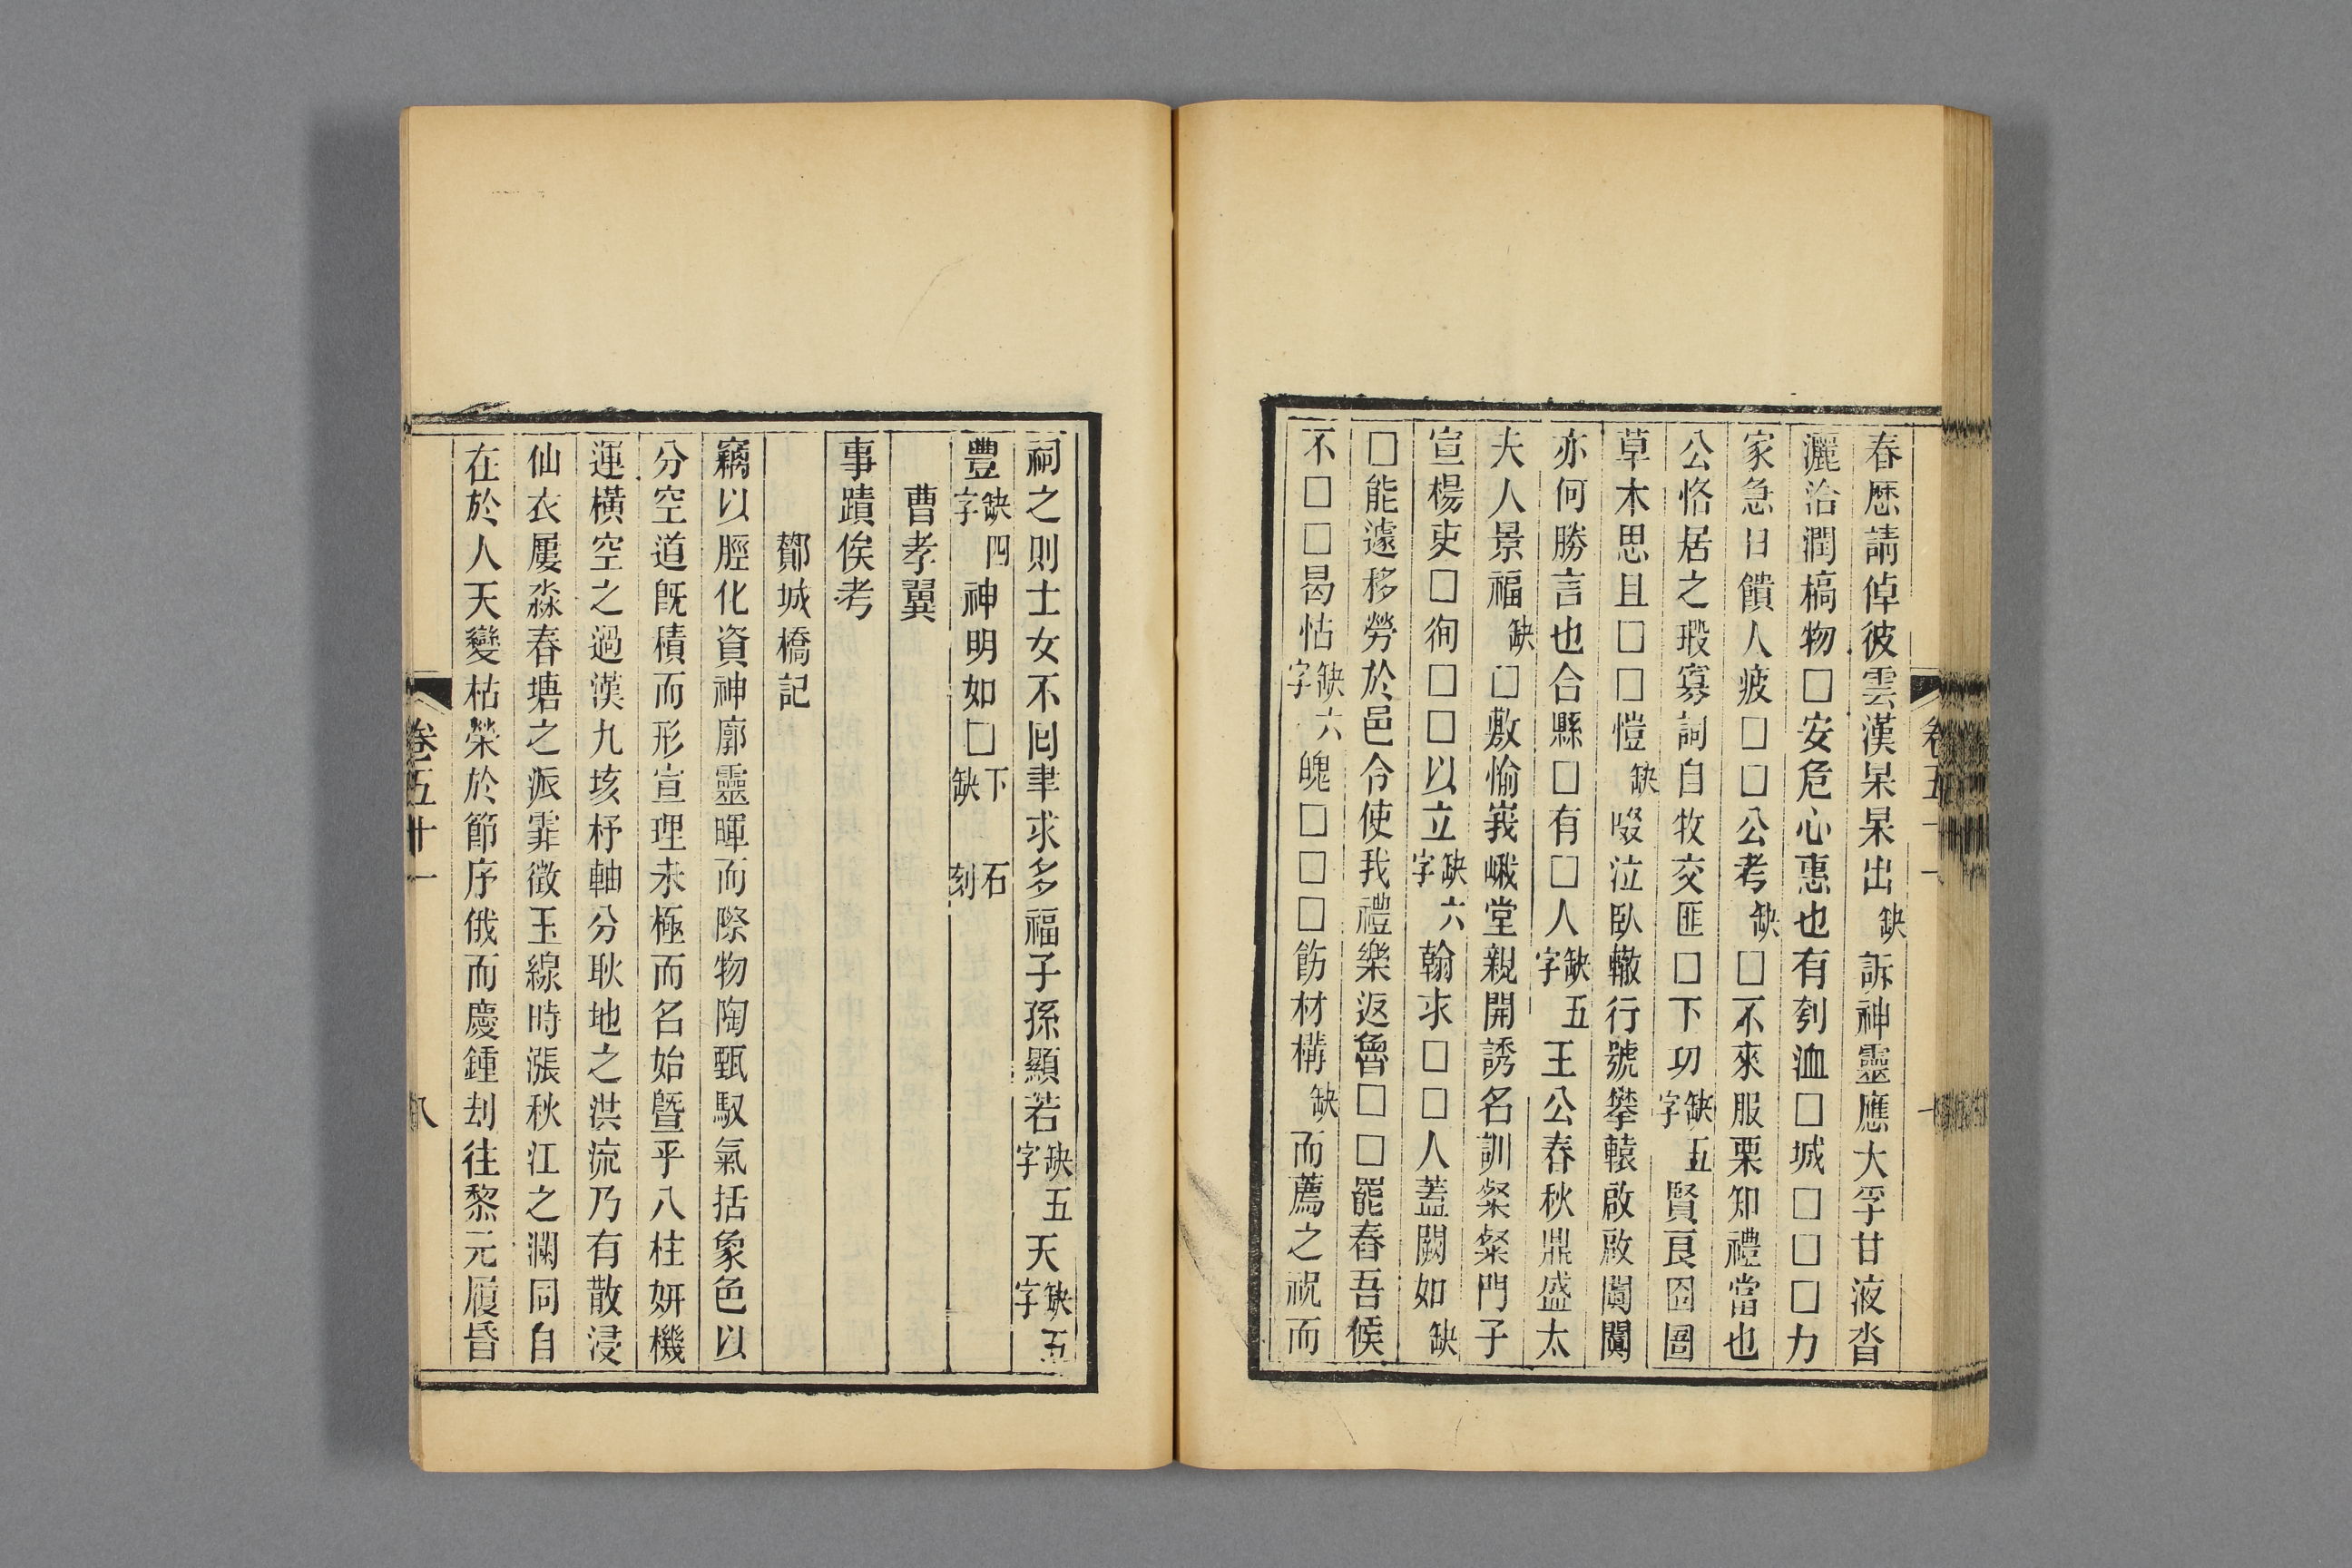 春厯請倬彼雲漢杲杲出缺訴神靈應大孚甘液沓
灑洽潤槁物□安危心惪也有刳洫□城□□□力
家急日饋人疲□□公考缺□不來服栗知禮當也
公恪居之瑕寡詞自牧交匪□下功缺五字賢良囹圄
草木思且□□愷缺啜泣臥轍行號攀轅啟啟闐闐
亦何勝言也合縣□有□人缺五字王公春秋鼎盛太
夫人景福缺□敷愉峩峨堂親開誘名訓粲粲門子
宣楊吏□徇□□以立缺六字翰求□□人蓋闕如缺
□能遽移勞於邑令使我禮樂返魯□□罷舂吾候
不□□曷怙缺六字魄□□□飭材構缺而薦之祝而
卷五十一
祠之則士女不回聿求多福子孫顯若缺五字天缺五字
豐缺四字神明如□下缺 石刻
曹孝翼
事蹟俟考
鄼城橋記
竊以脛化資神廓靈暉而際物陶甄馭氣括象色以
分空道旣積而形宣理未極而名始曁乎八柱妍機
運橫空之過漢九垓杼軸分耿地之洪流乃有散浸
仙衣屢淼春塘之派霏徵玉線時漲秋江之瀾同自
在於人天變枯榮於節序俄而慶鍾刦往黎元履昏
卷五十一 八